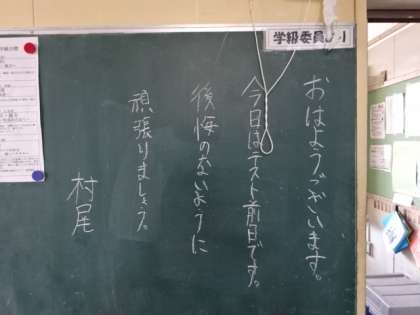 学級委員より
おはようございます。
今日はテスト前日です。
後悔のないように
頑張りましょう。
村尾